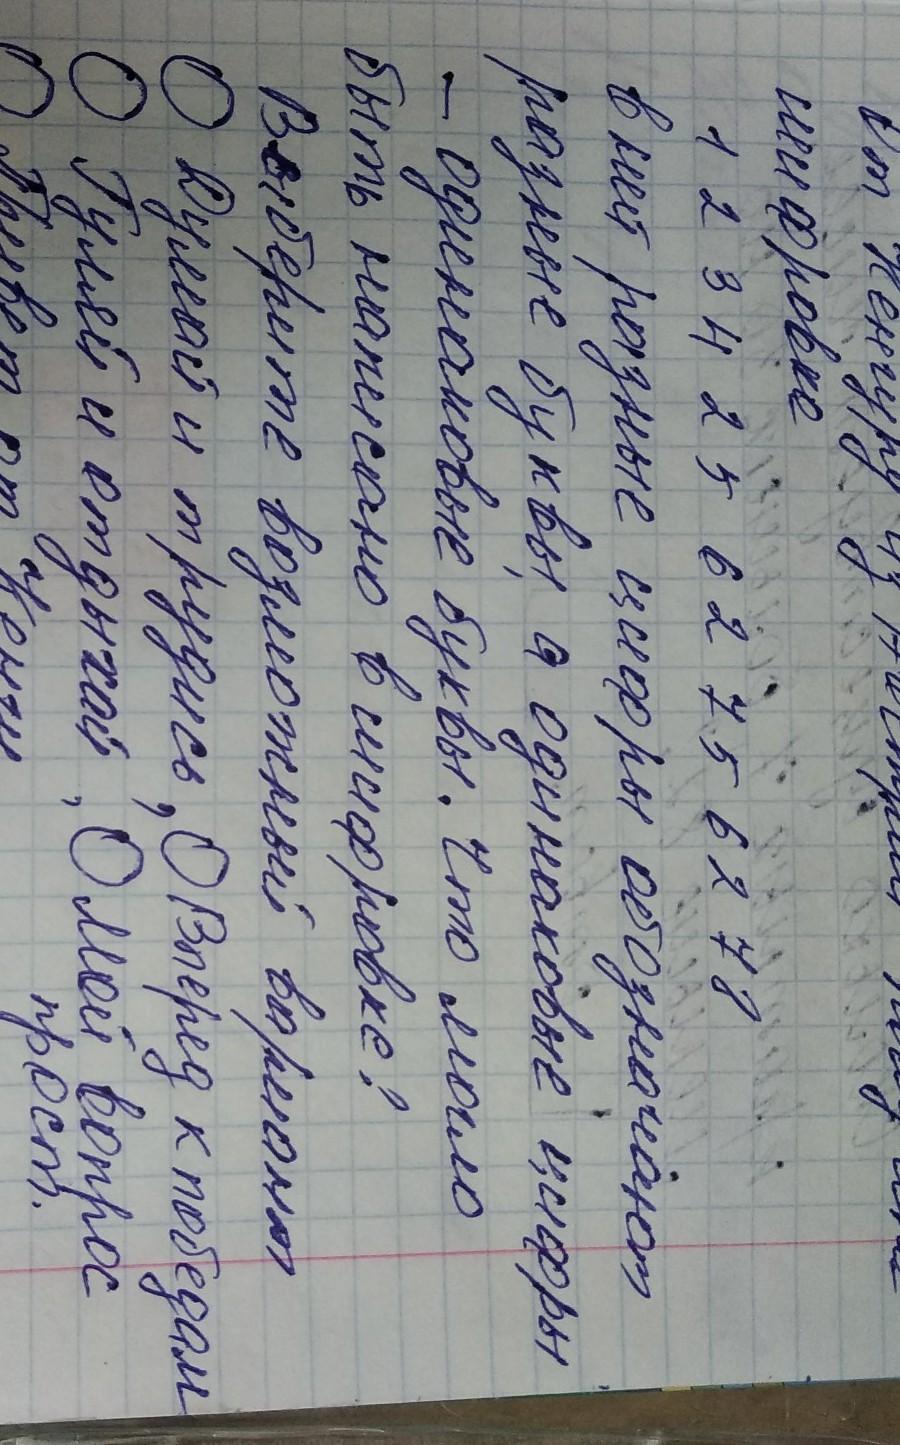 шифровке
1 2 3 4 2 5 6 2 7 5 6 2 7 8
в ней разные цифры обозначают
разные буквы, а одинаковые цифры
- одинаковые буквы. Что могло
быть написано в шифровке?
Выберите возможный вариант
О Думай и трудись, О Вперед к победам
О Гуляй и отдыхай, О Мой вопрос
прост.
О Привет от